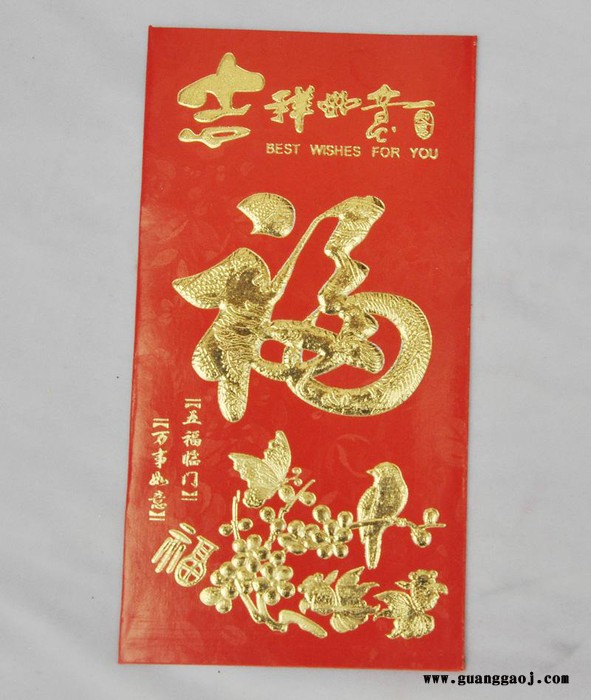 吉祥如意
BEST WISHES FOR YOU
福
【五福临门】
【万事如意】
福
www.guanggaoj.com